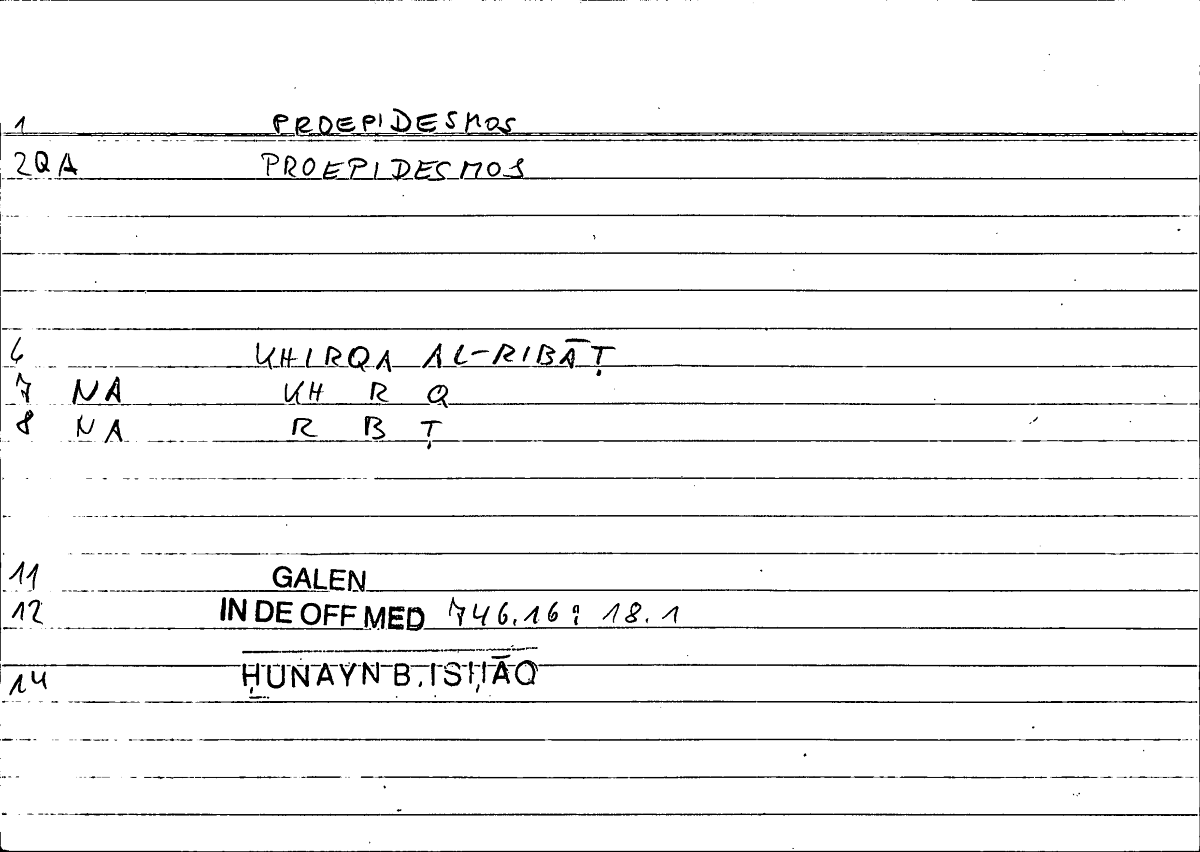 1 PROEPIDESMOS
2QA PROEPIDESMOS
6 KHIRQA AL-RIBĀṬ
7 NA KH R Q
8 NA R B Ṭ
11 GALEN
12 IN DE OFF MED 746.16 : 18.1
14 ḤUNAYN B. ISḤĀQ